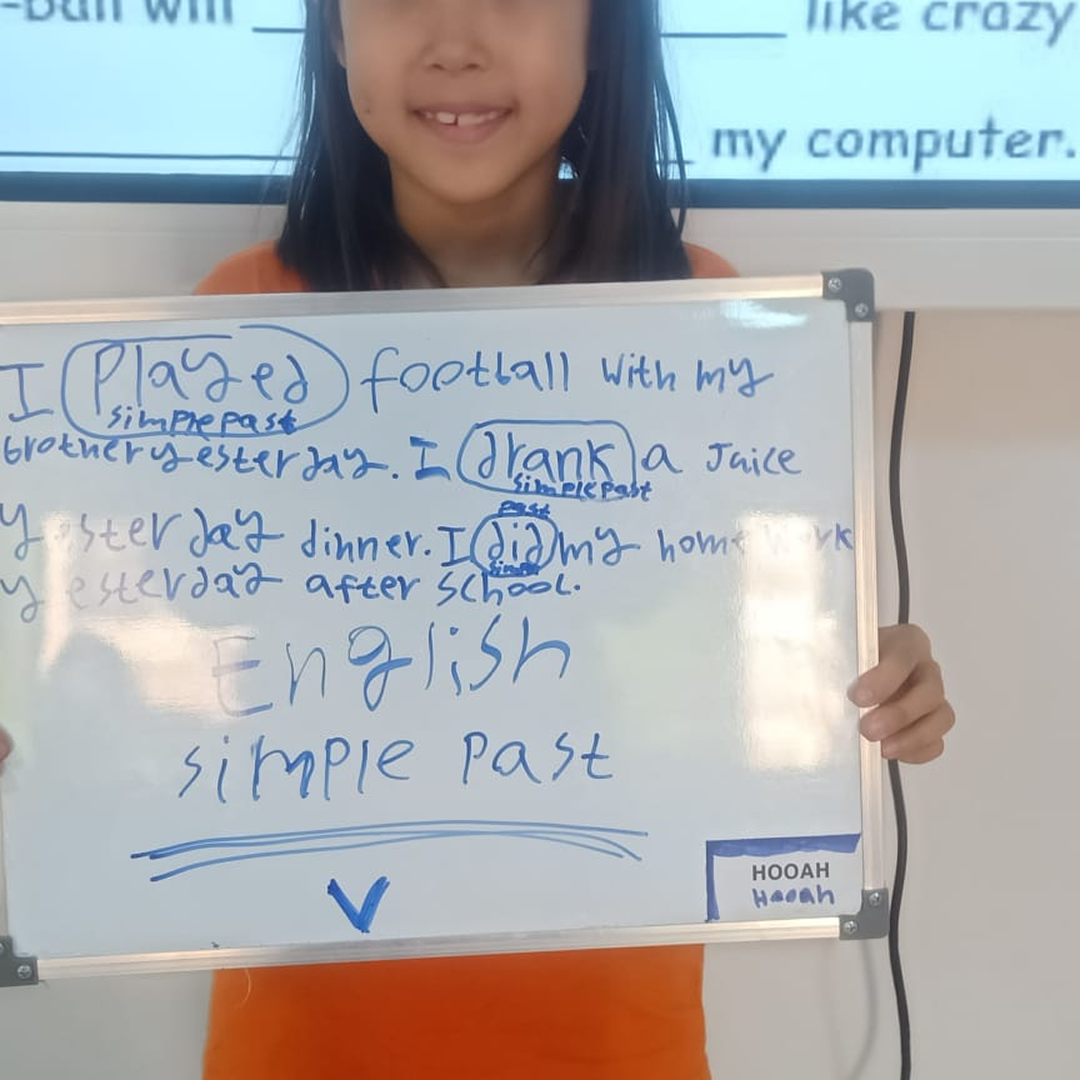 -ball will ____ like crazy
____ my computer.
I Played football with my
simple past
brother yesterday. I drank a Juice
simple past
past
yesterday dinner. I did my homework
simple
yesterday after school.
English
simple past
V
HOOAH
Hooah